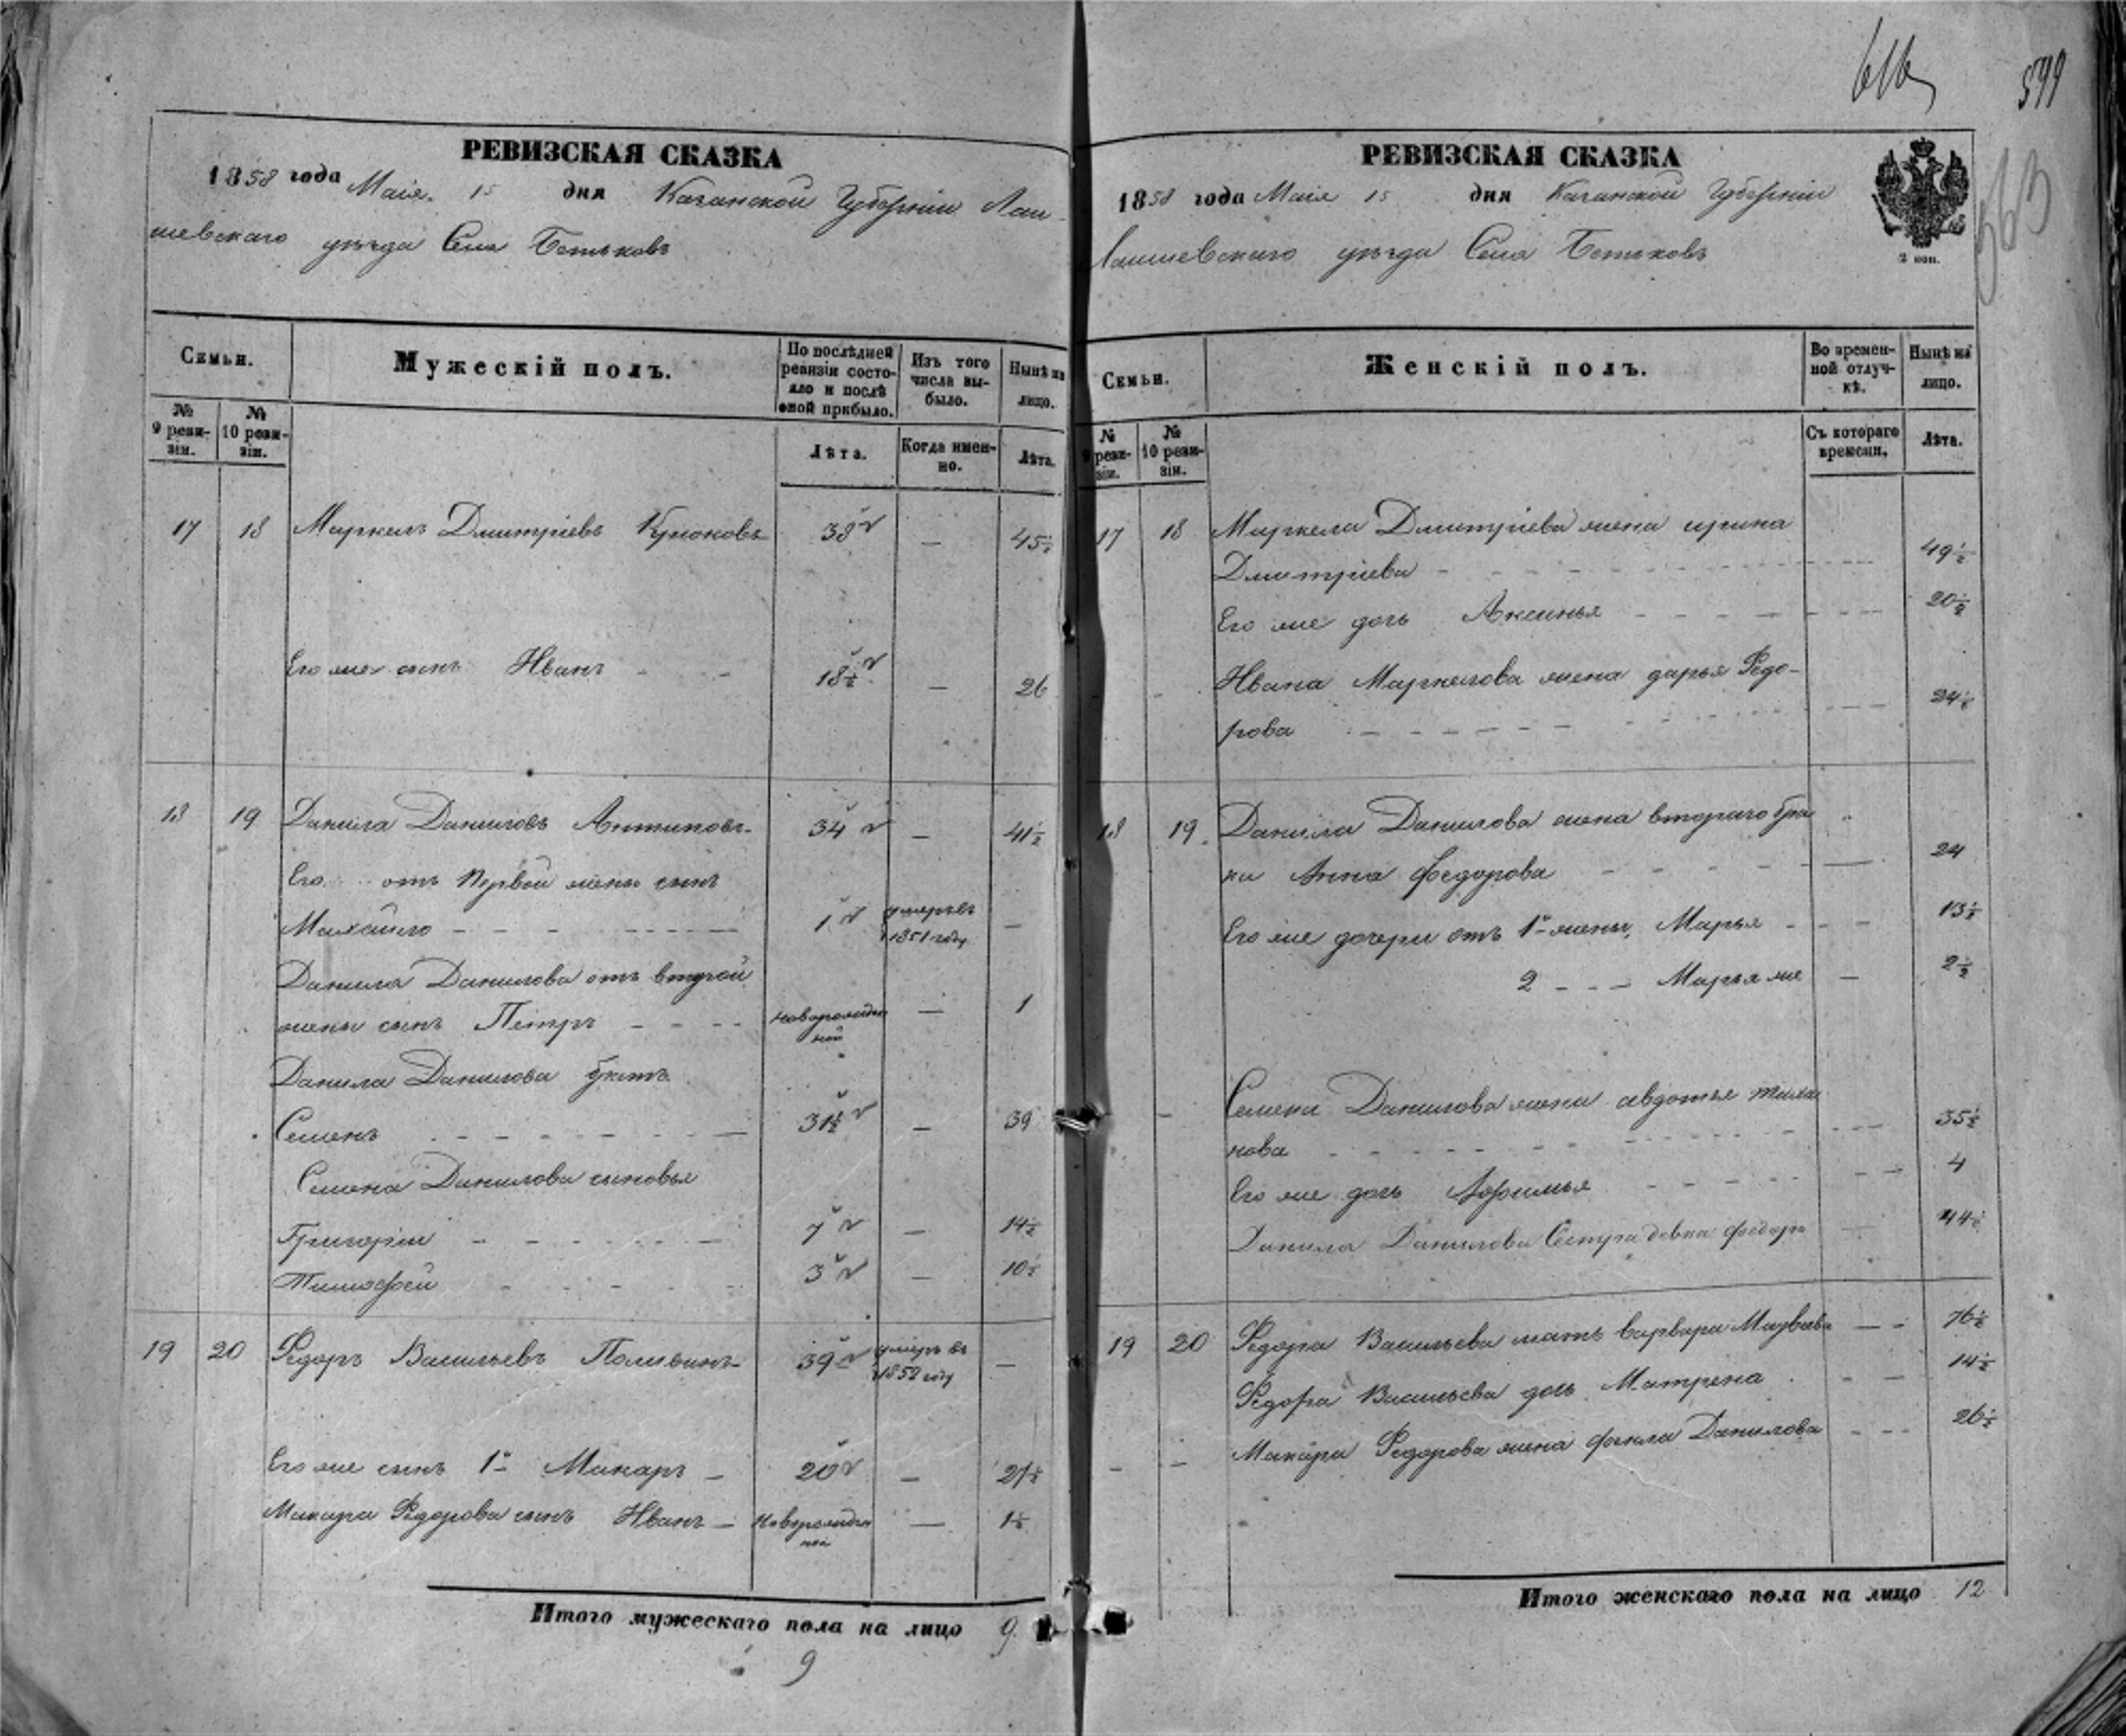 616
599
563
РЕВИЗСКАЯ СКАЗКА
1858 года Маія 15 дня Казанской Губерніи Лаи-
шевскаго уѣзда Села Бетьковъ
Семьи.
Мужескій полъ.
По послѣдней ревизіи состо-
яло и послѣ оной прибыло.
Изъ того числа вы-
было.
Нынѣ на лицо.
№ 9 реви-
зіи.
№ 10 реви-
зіи.
Лѣта.
Когда имен-
но.
Лѣта.
17 18 Маркелъ Дмитріевъ Крюковъ 38 — 45½
Его же сынъ Иванъ - - 18½ — 26
18 19 Данила Даниловъ Антиповъ 34 — 41½
Его отъ первой жены сынъ
Михайло - - - 1 умеръ въ 1851 году —
Данила Данилова отъ второй
жены сынъ Петръ - - - - новорожден
ной — 1
Данила Данилова братъ
Семенъ - - - 31½ — 39
Семена Данилова сыновья
Григорій - - - 7 — 14½
Тимофей - - - 3 — 10½
19 20 Ѳедоръ Васильевъ 39 умеръ въ 1852 году —
Его же сынъ 1й Макаръ — 20 — 27½
Макара Ѳедорова сынъ Иванъ — Новорожден
ной — 1½
Итого мужескаго пола на лицо 9.
9
РЕВИЗСКАЯ СКАЗКА
1858 года Маія 15 дня Казанской Губерніи
Лаишевскаго уѣзда Села Бетьковъ
2 коп.
Семьи.
Женскій полъ.
Во времен-
ной отлуч-
кѣ.
Нынѣ на лицо.
№ 9 реви-
зіи.
№ 10 реви-
зіи.
Съ котораго времени.
Лѣта.
17 18 Маркела Дмитріева жена ирина
Дмитріева - - - 49½
Его же дочь Аксинья - - - 20½
Ивана Маркелова жена дарья Ѳедо-
рова - - - 24½
18 19. Данила Данилова жена втораго бра
ка Анна Федорова - - - 24
Его же дочери отъ 1й жены, Марья - - - 13½
2 - - - Марья же — 2½
Семена Данилова жена авдотья
нова - - - 35½
Его же дочь Афимья - - - 4
Данила Данилова Сестра девка федора — 44½
19 20 Ѳедора Васильева мать варвара — - 76½
Ѳедора Васильева дочь Матрена - - — 14½
Макара Ѳедорова жена фекла Данилова - - - 26½
Итого женскаго пола на лицо 12